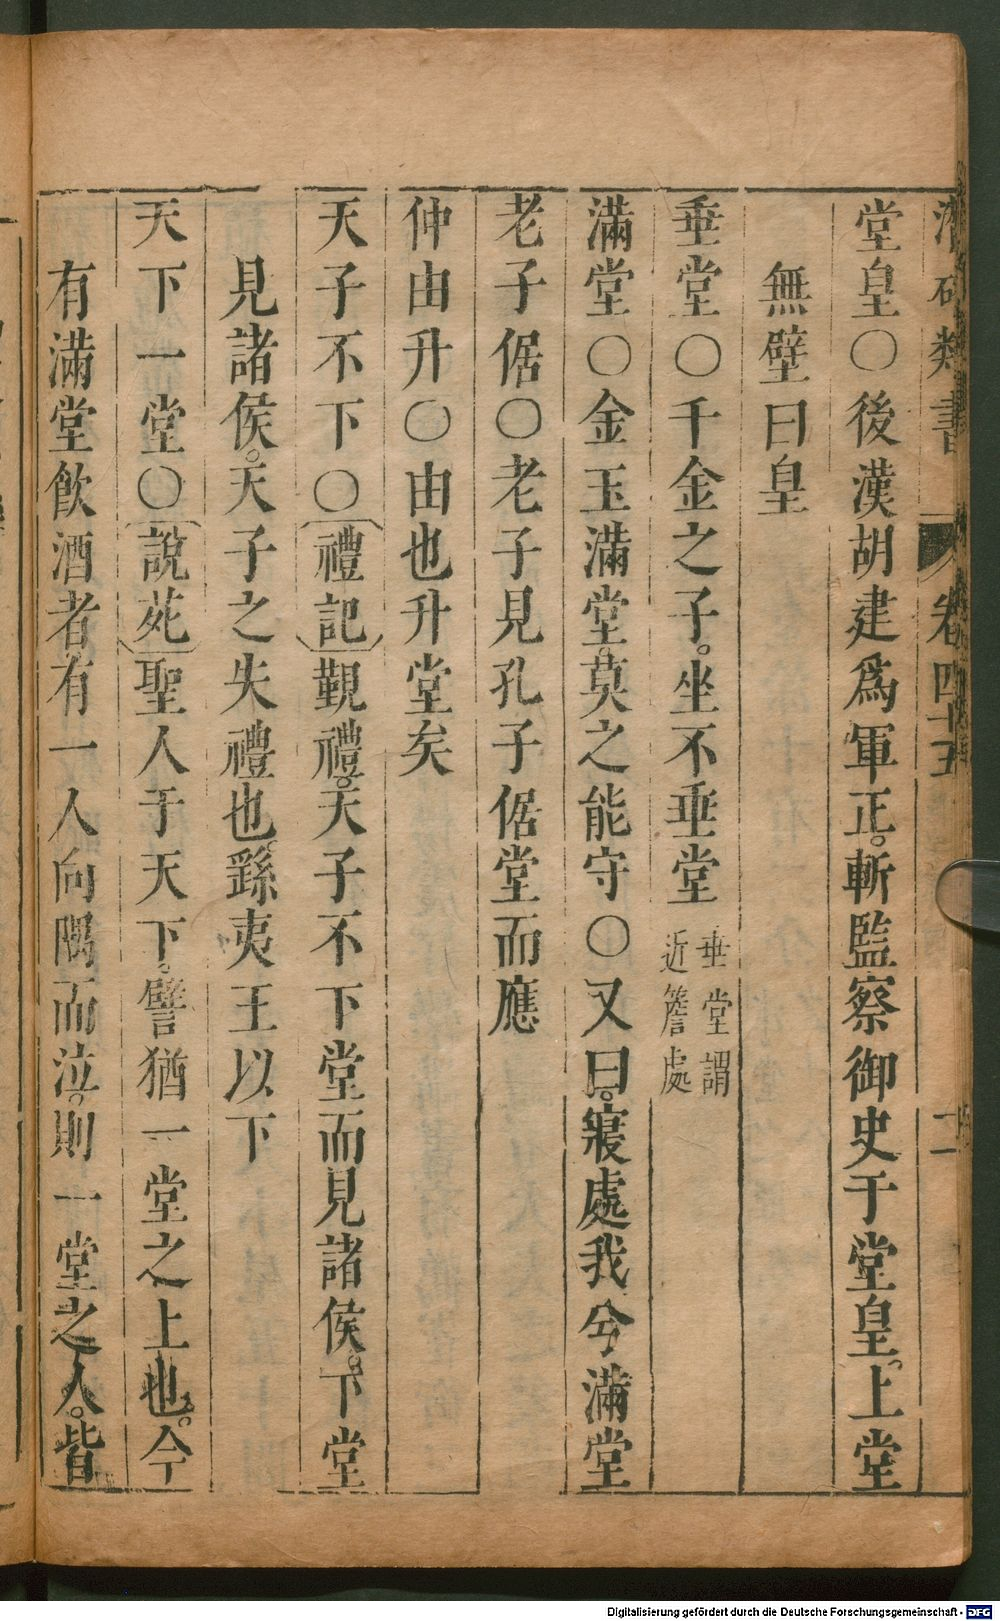 潛確類書 卷四十五 二
堂皇○後漢胡建爲軍正。斬監察御史于堂皇。上堂
無壁曰皇
垂堂○千金之子。坐不垂堂 垂堂謂近簷處
滿堂○金玉滿堂。莫之能守○又曰。寢處我兮滿堂
老子倨○老子見孔子倨堂而應
仲由升○由也升堂矣
天子不下○〔禮記〕覲禮。天子不下堂而見諸侯。下堂
見諸侯。天子之失禮也。繇夷王以下
天下一堂○〔說苑〕聖人于天下。譬猶一堂之上也。今
有滿堂飮酒者。有一人向隅而泣。則一堂之人。皆
Digitalisierung gefördert durch die Deutsche Forschungsgemeinschaft - DFG